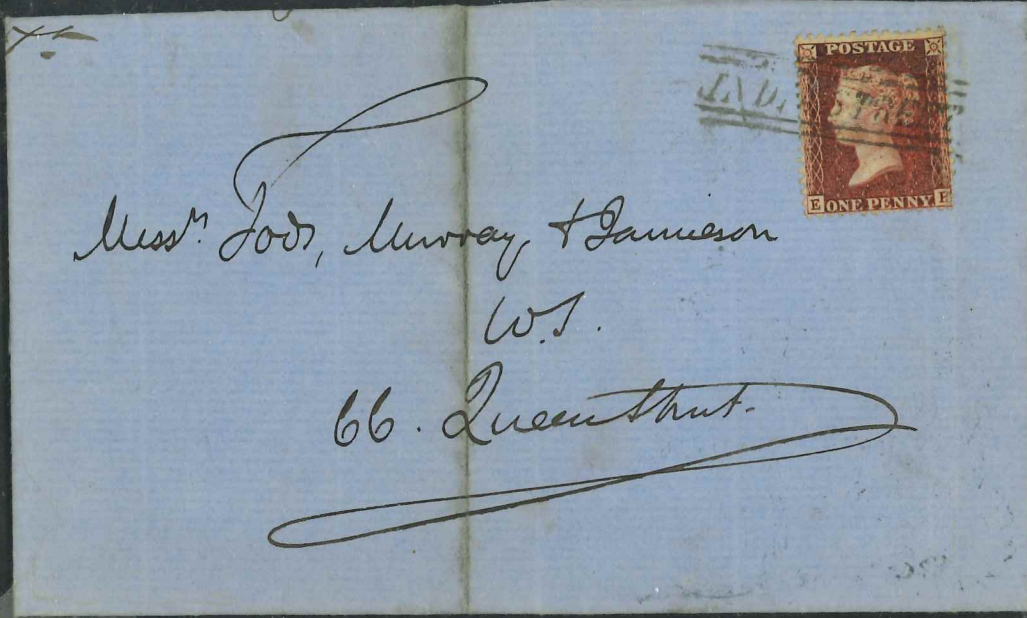 POSTAGE
E ONE PENNY F
Messrs. Tods, Murray, & Jamieson
W.S.
66. Queen Street.